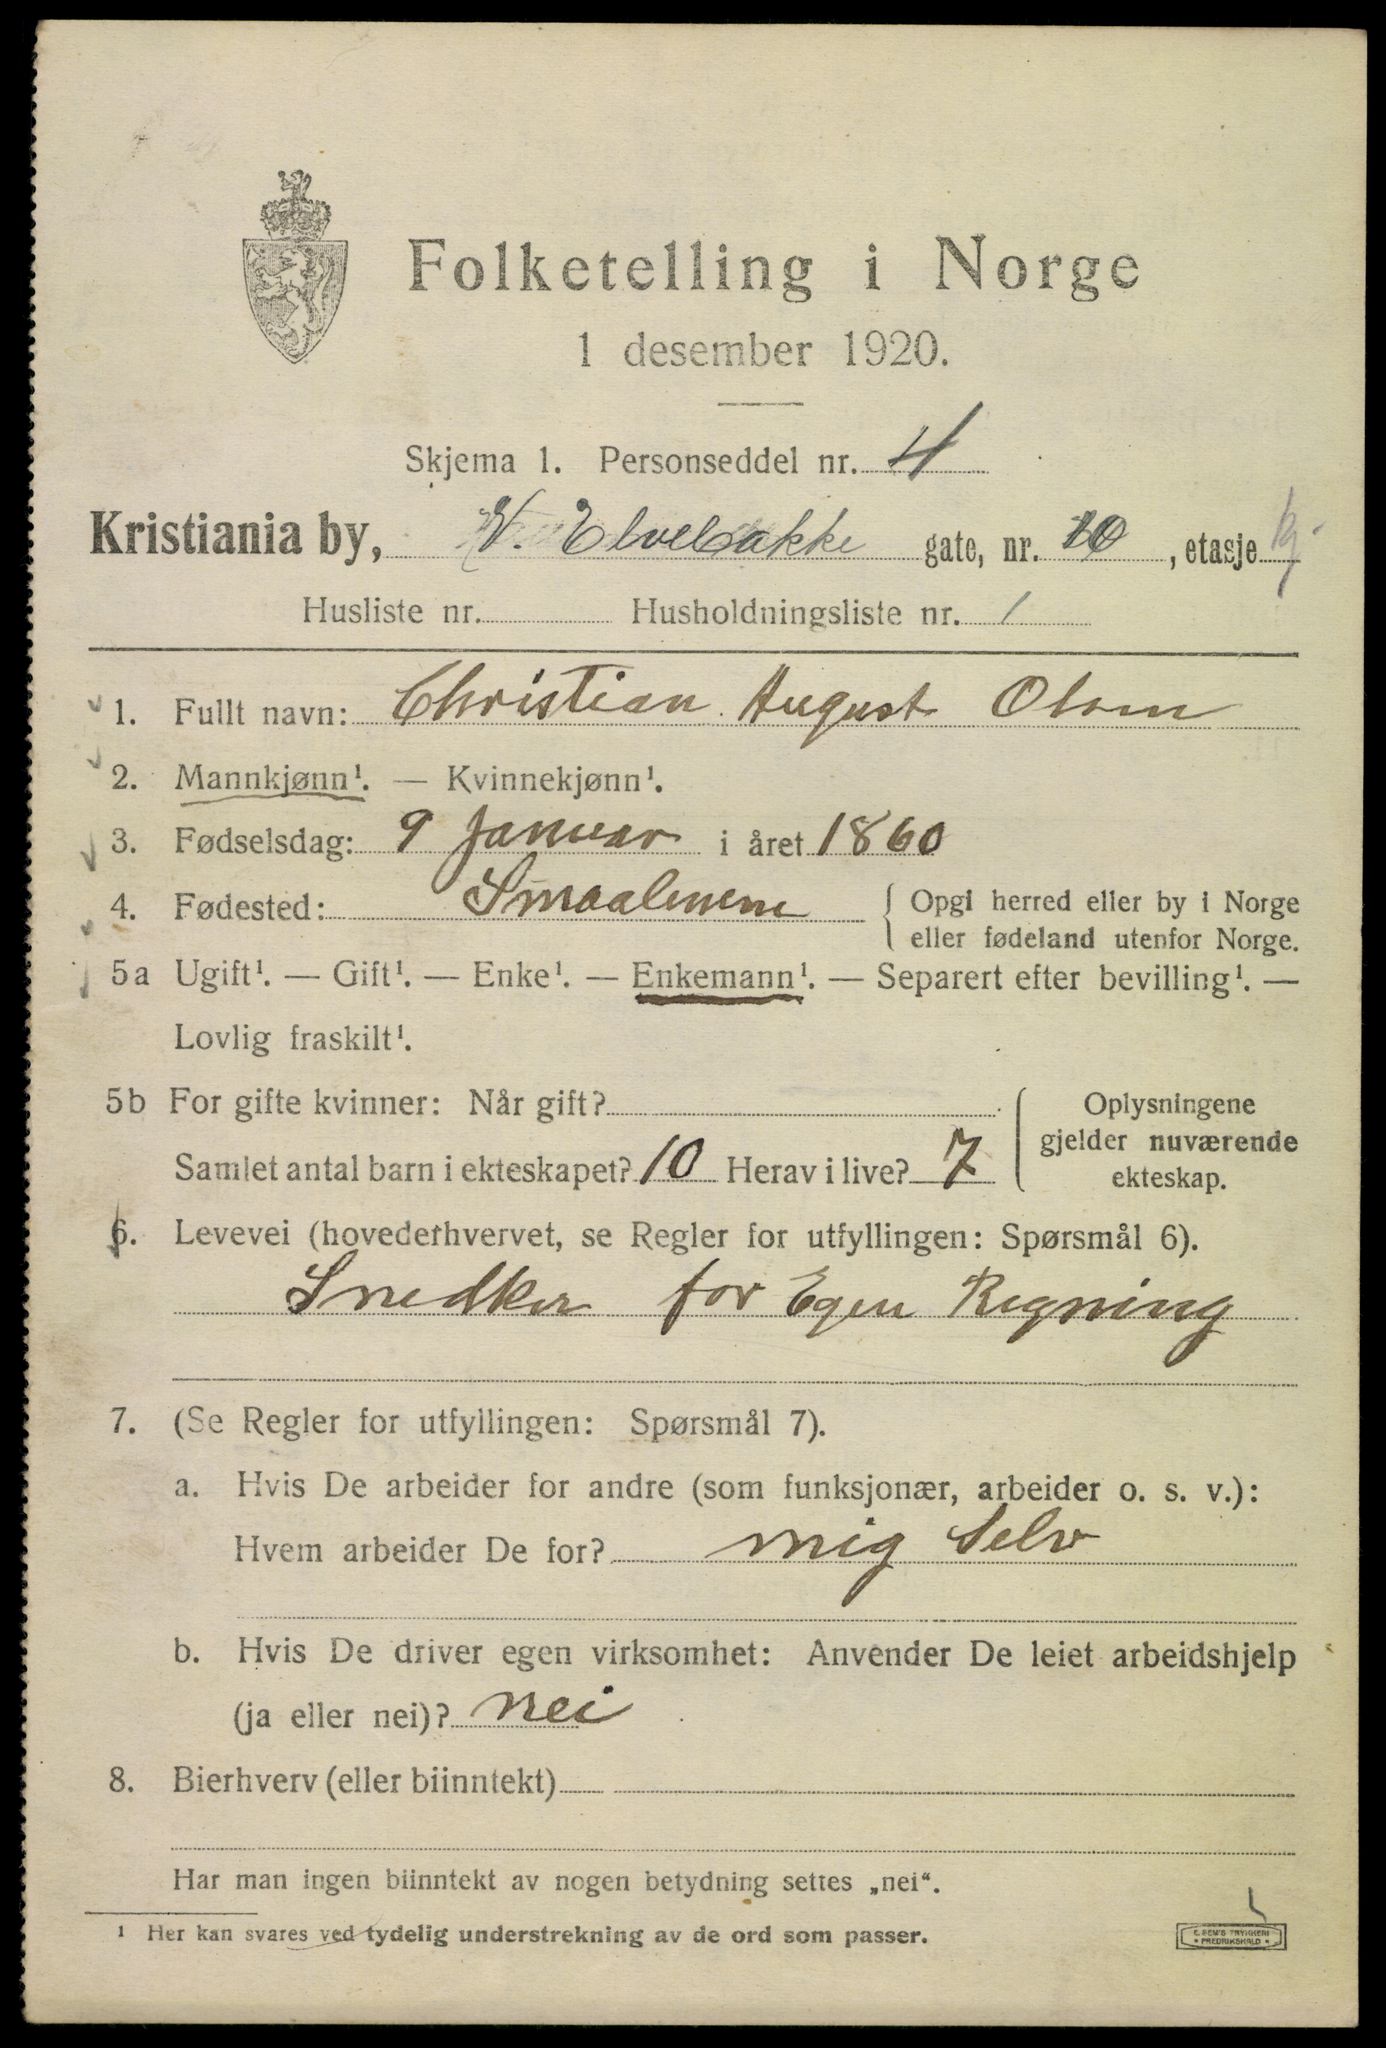 Folketelling i Norge
1 desember 1920.
Skjema 1. Personseddel nr. 4
Kristiania by, V. Elvebakke gate, nr. 10, etasje Kj.
Husliste nr. Husholdningsliste nr. 1
1. Fullt navn: Christian August Olsen
2. Mannkjønn¹. — Kvinnekjønn¹.
3. Fødselsdag: 9 Januar i året 1860
4. Fødested: Smaalenene { Opgi herred eller by i Norge
eller fødeland utenfor Norge.
5a Ugift¹. — Gift¹. — Enke¹. — Enkemann¹. — Separert efter bevilling¹. —
Lovlig fraskilt¹.
5b For gifte kvinner: Når gift?
Samlet antal barn i ekteskapet? 10 Herav i live? 7
Oplysningene
gjelder nuværende
ekteskap.
6. Levevei (hovederhvervet, se Regler for utfyllingen: Spørsmål 6).
Snedker for Egen Regning
7. (Se Regler for utfyllingen: Spørsmål 7).
a. Hvis De arbeider for andre (som funksjonær, arbeider o. s. v.):
Hvem arbeider De for? mig Selv
b. Hvis De driver egen virksomhet: Anvender De leiet arbeidshjelp
(ja eller nei)? nei
8. Bierhverv (eller biinntekt)
Har man ingen biinntekt av nogen betydning settes „nei“.
¹ Her kan svares ved tydelig understrekning av de ord som passer.
E. SEM'S TRYKKERI
• FREDRIKSHALD •